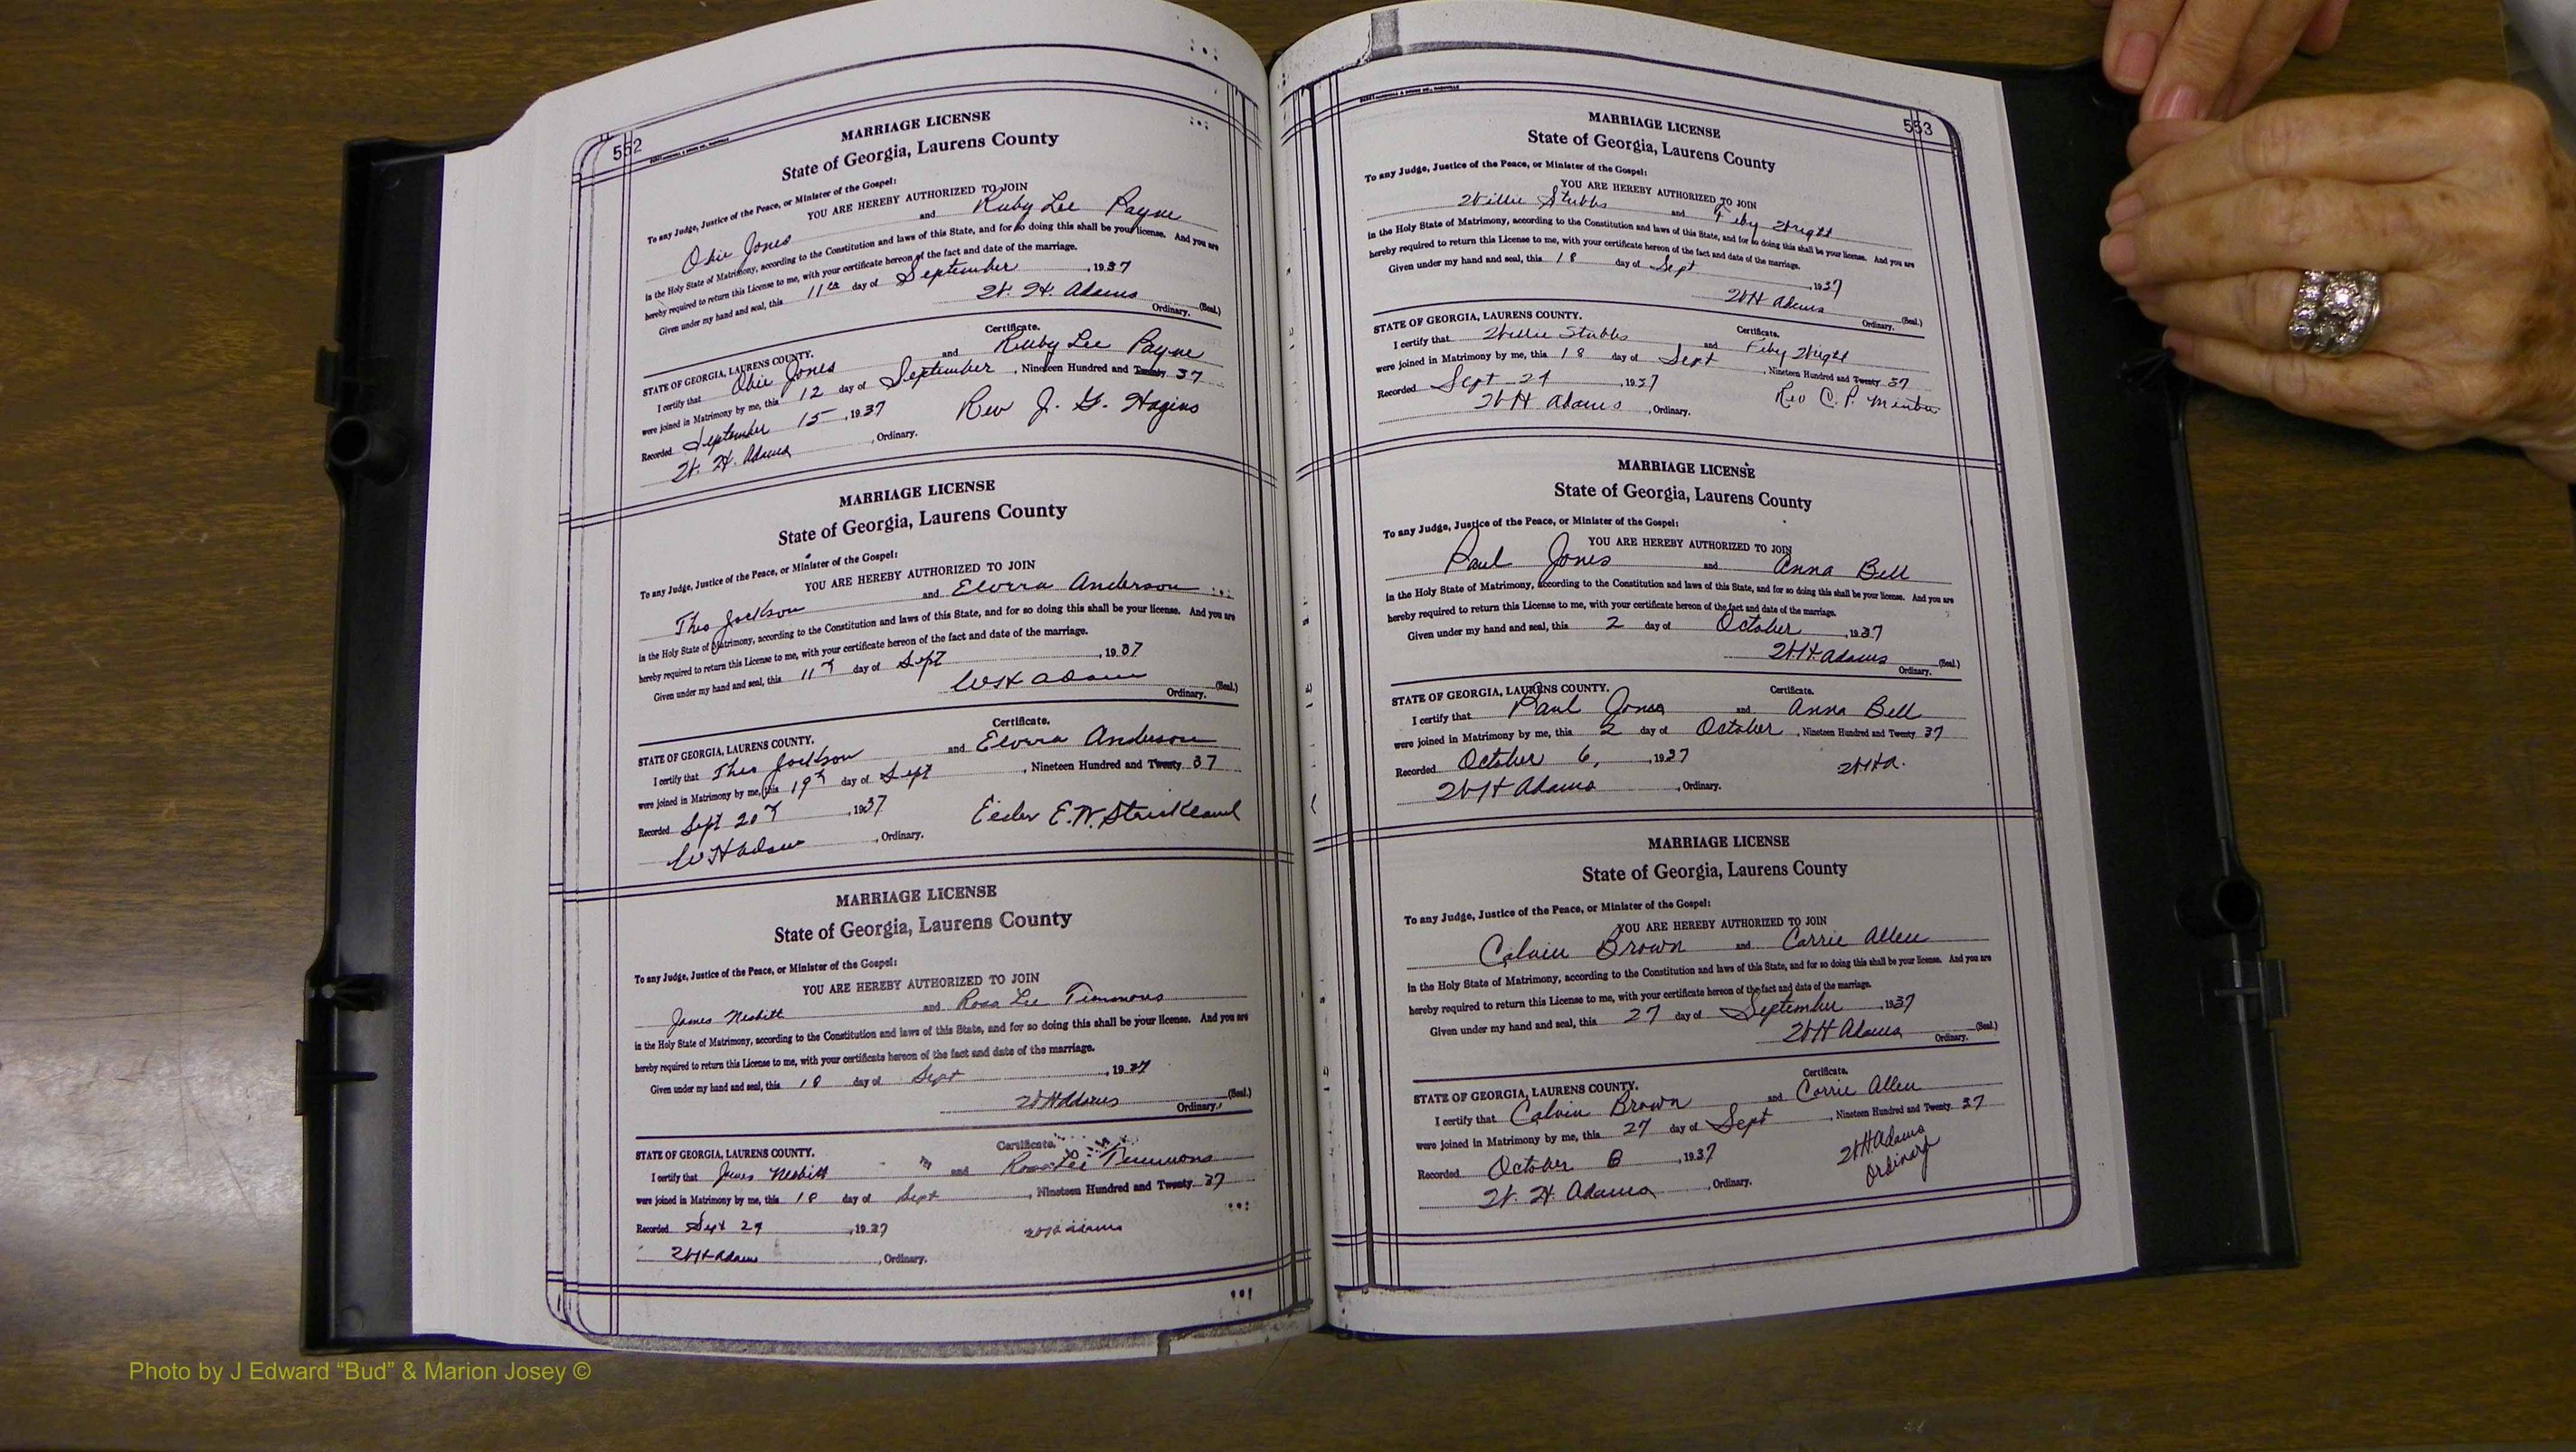 552
MARRIAGE LICENSE
State of Georgia, Laurens County
To any Judge, Justice of the Peace, or Minister of the Gospel:
YOU ARE HEREBY AUTHORIZED TO JOIN
Obie Jones and Ruby Lee Payne
in the Holy State of Matrimony, according to the Constitution and laws of this State, and for so doing this shall be your license. And you are
hereby required to return this License to me, with your certificate hereon of the fact and date of the marriage.
Given under my hand and seal, this 11th day of September, 1937
W. H. Adams (Seal.)
Ordinary.
Certificate.
STATE OF GEORGIA, LAURENS COUNTY.
I certify that Obie Jones and Ruby Lee Payne
were joined in Matrimony by me, this 12 day of September, Nineteen Hundred and Twenty 37
Recorded September 15, 1937 Rev J. G. Hagins
W. H. Adams, Ordinary.
MARRIAGE LICENSE
State of Georgia, Laurens County
To any Judge, Justice of the Peace, or Minister of the Gospel:
YOU ARE HEREBY AUTHORIZED TO JOIN
Theo Jackson and Elvira Anderson
in the Holy State of Matrimony, according to the Constitution and laws of this State, and for so doing this shall be your license. And you are
hereby required to return this License to me, with your certificate hereon of the fact and date of the marriage.
Given under my hand and seal, this 11th day of Sept, 1937
W H Adams (Seal.)
Ordinary.
Certificate.
STATE OF GEORGIA, LAURENS COUNTY.
I certify that Theo Jackson and Elvira Anderson
were joined in Matrimony by me, this 19th day of Sept, Nineteen Hundred and Twenty 37
Recorded Sept 20th, 1937 Elder E. W. Strickland
W H Adams, Ordinary.
MARRIAGE LICENSE
State of Georgia, Laurens County
To any Judge, Justice of the Peace, or Minister of the Gospel:
YOU ARE HEREBY AUTHORIZED TO JOIN
James Nesbitt and Rosa Lee Timmons
in the Holy State of Matrimony, according to the Constitution and laws of this State, and for so doing this shall be your license. And you are
hereby required to return this License to me, with your certificate hereon of the fact and date of the marriage.
Given under my hand and seal, this 18 day of Sept, 1937
W H Adams (Seal.)
Ordinary.
Certificate.
STATE OF GEORGIA, LAURENS COUNTY.
I certify that James Nesbitt and Rosa Lee Timmons
were joined in Matrimony by me, this 18 day of Sept, Nineteen Hundred and Twenty 37
Recorded Sept, 1937 W H Adams
W H Adams, Ordinary.
553
MARRIAGE LICENSE
State of Georgia, Laurens County
To any Judge, Justice of the Peace, or Minister of the Gospel:
YOU ARE HEREBY AUTHORIZED TO JOIN
Willie Stubbs and Feby Wright
in the Holy State of Matrimony, according to the Constitution and laws of this State, and for so doing this shall be your license. And you are
hereby required to return this License to me, with your certificate hereon of the fact and date of the marriage.
Given under my hand and seal, this 18 day of Sept, 1937
W H Adams (Seal.)
Ordinary.
Certificate.
STATE OF GEORGIA, LAURENS COUNTY.
I certify that Willie Stubbs and Feby Wright
were joined in Matrimony by me, this 18 day of Sept, Nineteen Hundred and Twenty 37
Recorded Sept, 1937 Rev C. P.
W H Adams, Ordinary.
MARRIAGE LICENSE
State of Georgia, Laurens County
To any Judge, Justice of the Peace, or Minister of the Gospel:
YOU ARE HEREBY AUTHORIZED TO JOIN
Paul Jones and Anna Bell
in the Holy State of Matrimony, according to the Constitution and laws of this State, and for so doing this shall be your license. And you are
hereby required to return this License to me, with your certificate hereon of the fact and date of the marriage.
Given under my hand and seal, this 2 day of October, 1937
W. H. Adams (Seal.)
Ordinary.
Certificate.
STATE OF GEORGIA, LAURENS COUNTY.
I certify that Paul Jones and Anna Bell
were joined in Matrimony by me, this 2 day of October, Nineteen Hundred and Twenty 37
Recorded October 6, 1937 W H A.
W H Adams, Ordinary.
MARRIAGE LICENSE
State of Georgia, Laurens County
To any Judge, Justice of the Peace, or Minister of the Gospel:
YOU ARE HEREBY AUTHORIZED TO JOIN
Calvin Brown and Carrie Allen
in the Holy State of Matrimony, according to the Constitution and laws of this State, and for so doing this shall be your license. And you are
hereby required to return this License to me, with your certificate hereon of the fact and date of the marriage.
Given under my hand and seal, this 27 day of September, 1937
W H Adams (Seal.)
Ordinary.
Certificate.
STATE OF GEORGIA, LAURENS COUNTY.
I certify that Calvin Brown and Carrie Allen
were joined in Matrimony by me, this 27 day of Sept, Nineteen Hundred and Twenty 37
Recorded October, 1937 W H Adams
Ordinary
W. H. Adams, Ordinary.
Photo by J Edward “Bud” & Marion Josey ©